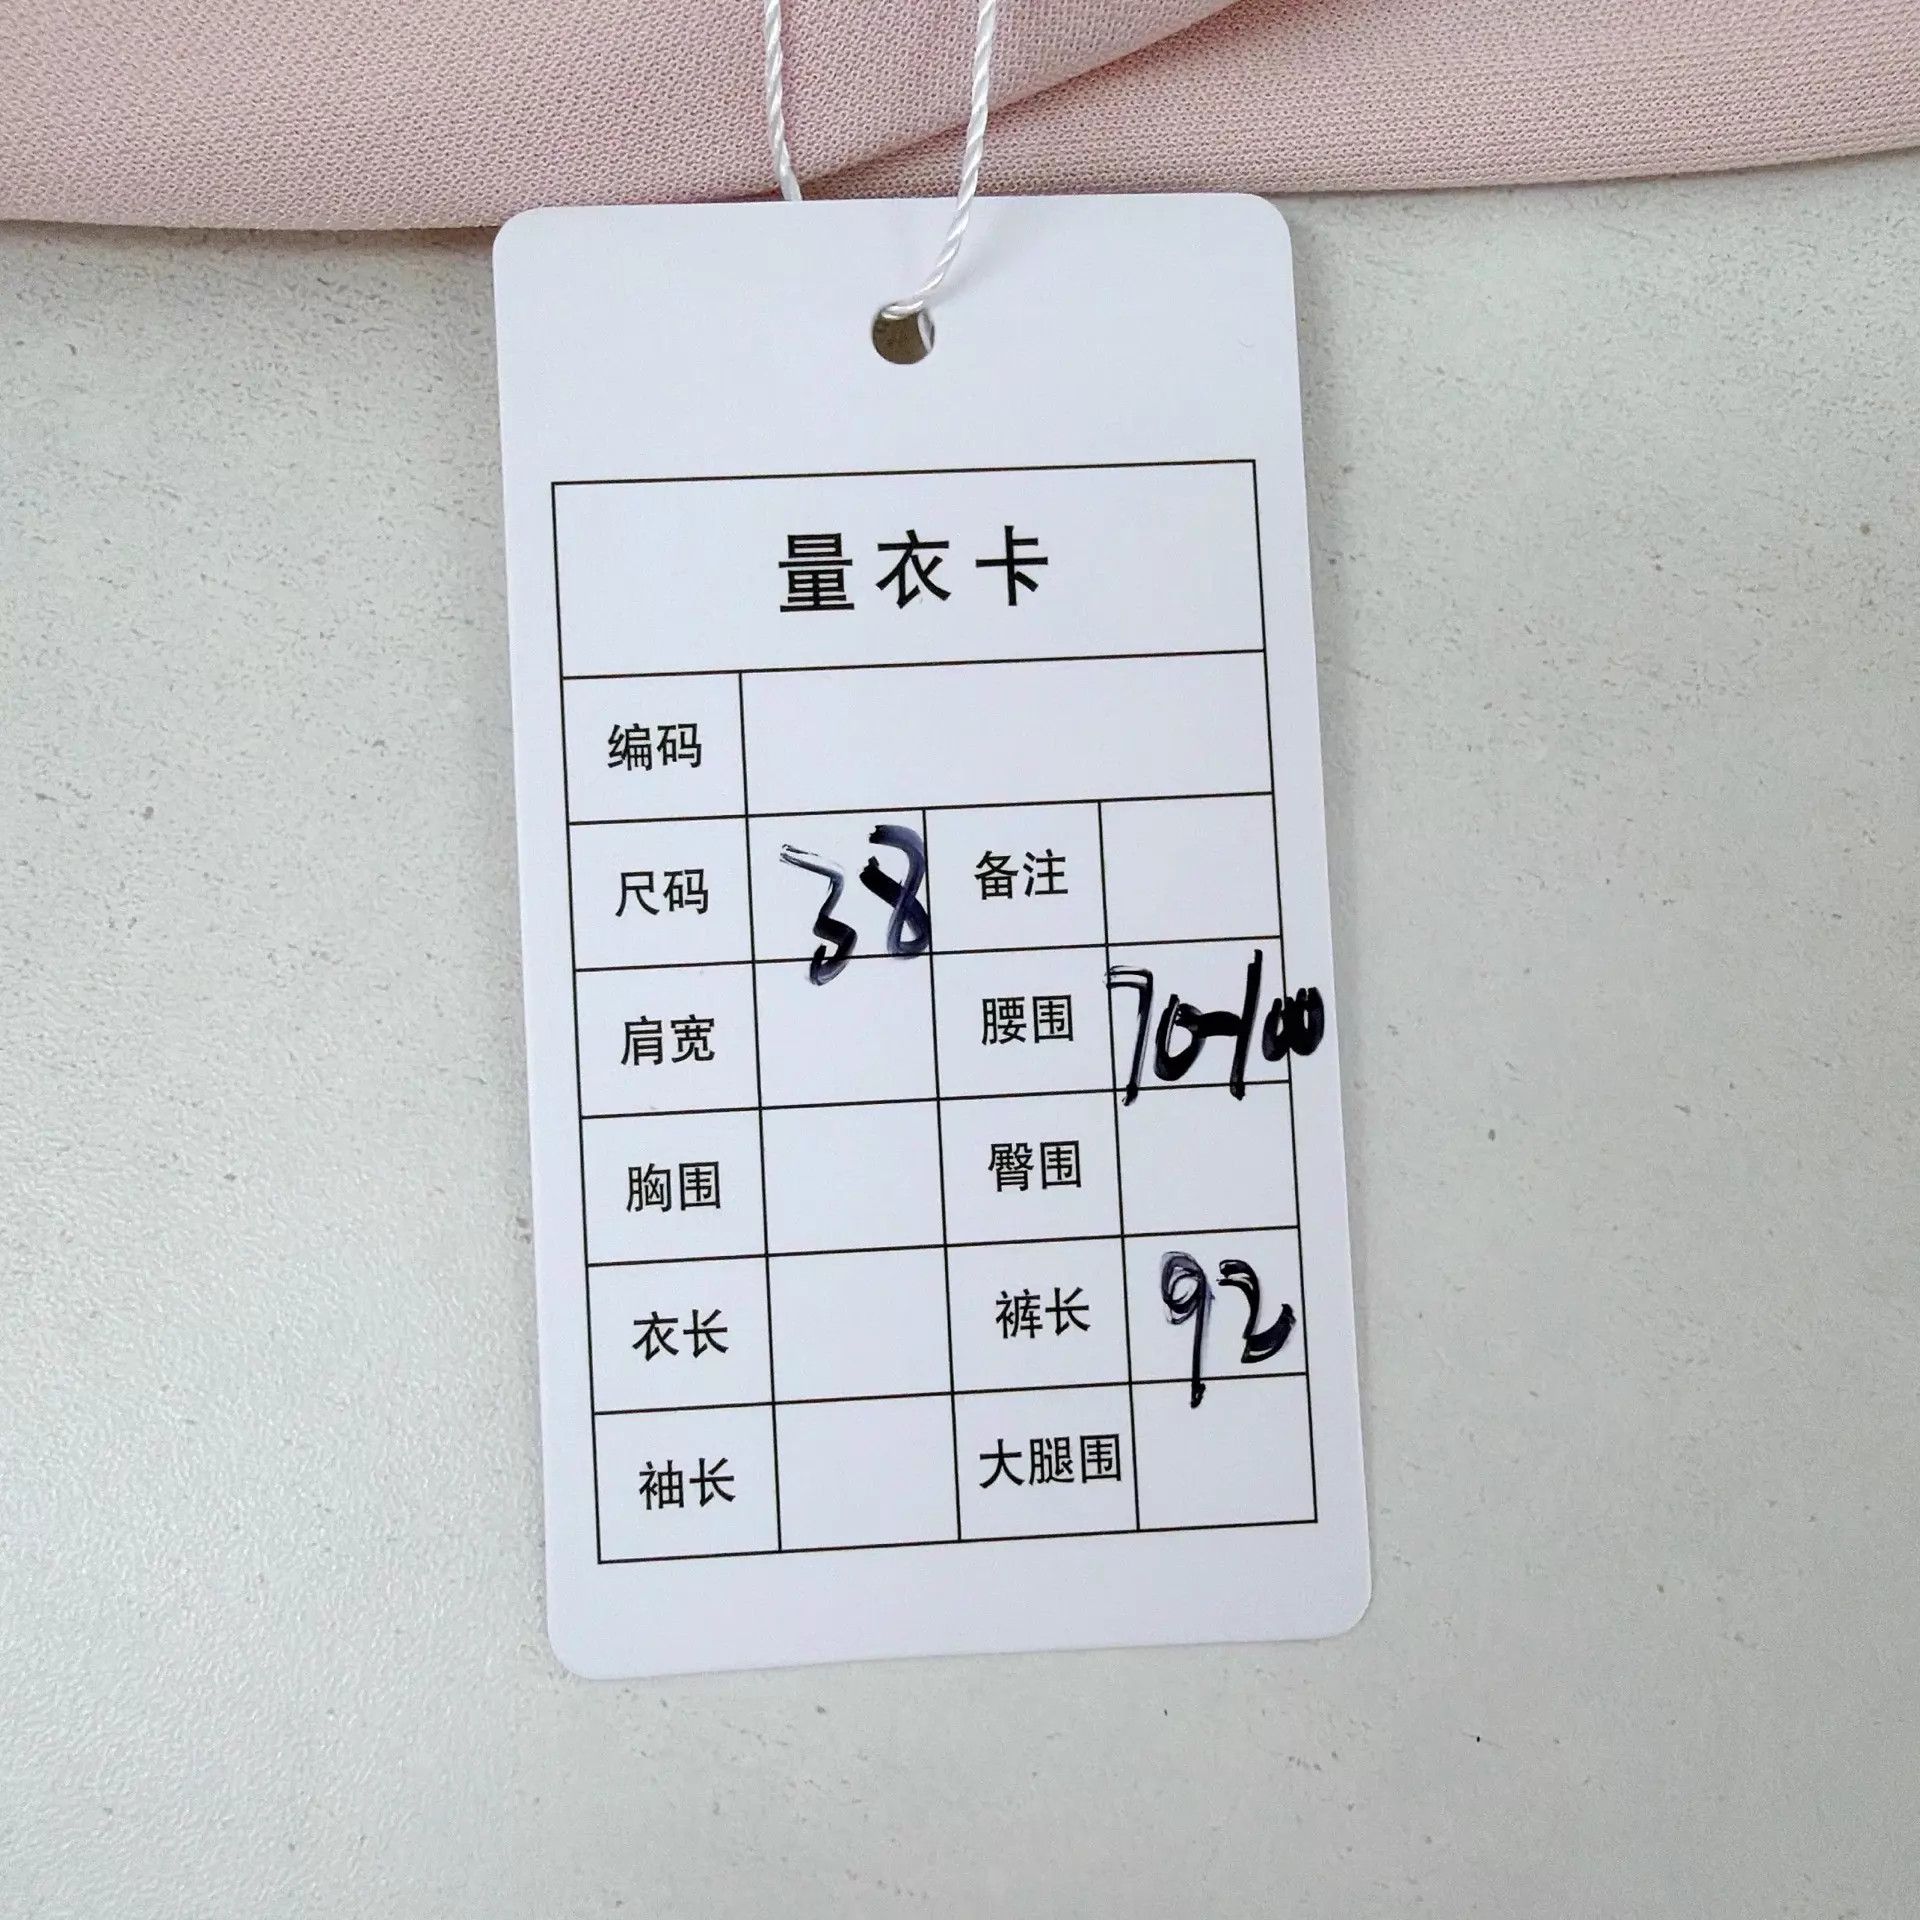 量衣卡
编码
尺码 38 备注
肩宽 腰围 70-100
胸围 臀围
衣长 裤长 92
袖长 大腿围